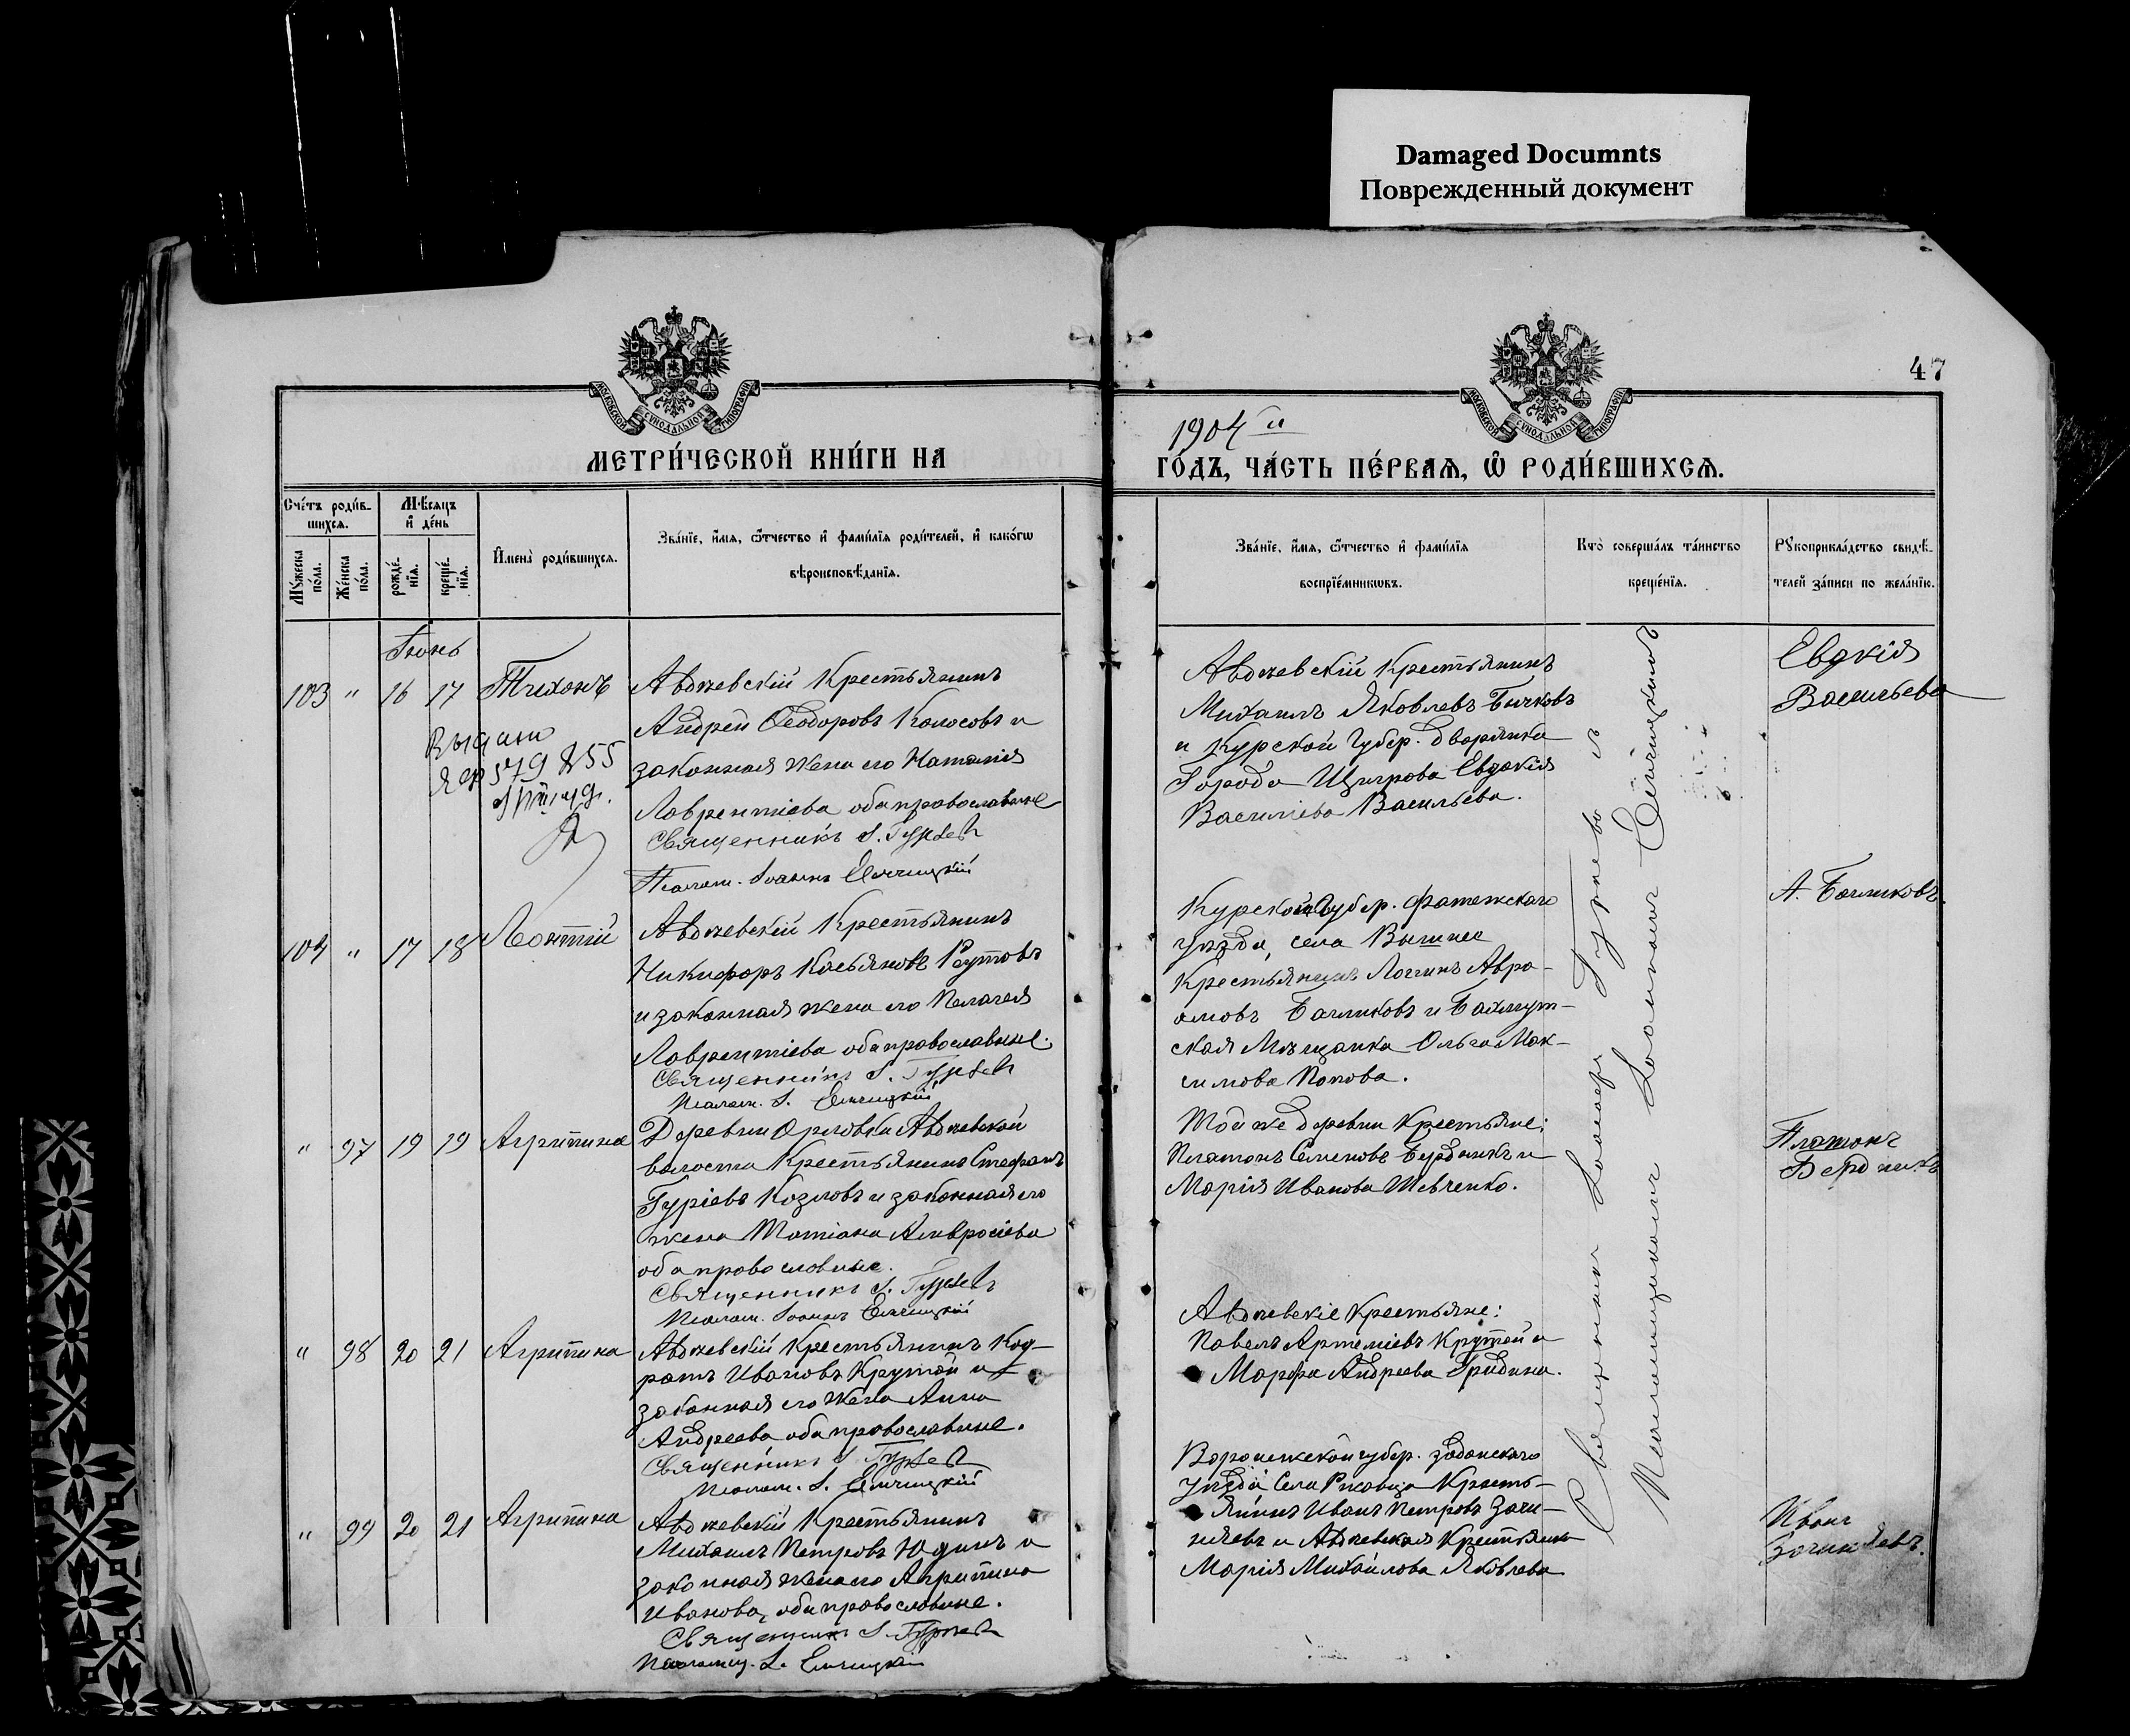 Damaged Documnts
Поврежденный документ
47
МОСКОВСКОЙ СѴНОДАЛЬНОЙ ТИПОГРАФІИ
МОСКОВСКОЙ СѴНОДАЛЬНОЙ ТИПОГРАФІИ
МЕТРИ́ЧЕСКОЙ КНИ́ГИ НА
1904 й
ГО́ДЪ, ЧА́СТЬ ПЕ́РВАЯ, Ѡ РОДИ́ВШИХСЯ.
Сче́тъ роди́в-
шихся.
Мꙋ́жеска по́ла.
Же́нска по́ла.
Мѣ́сяцъ
и҆ де́нь
рожде́-
нїя.
креще́-
нїя.
И҆мена̀ роди́вшихся.
Зва́нїе, и҆́мя, ѻ҆́тчество и҆ фами́лїя роди́телей, и҆ како́гѡ
вѣроисповѣ́данїя.
Зва́нїе, и҆́мя, ѻ҆́тчество и҆ фами́лїя
воспрїе́мникѡвъ.
Кто̀ соверша́лъ та́инство
креще́нїя.
Рꙋкоприкла́дство свидѣ́-
телей за́писи по жела́нїю.
Іюнь
103 " 16 17 Тихонъ
Авдѣевскій Крестьянинъ
Андрей Ѳеодоровъ Колосовъ и
законная жена его Наталія
Лаврентіева оба православные
Священникъ І. Гурьев
Псалом. Іоаннъ Елчицкій
Авдѣевскій Крестьянинъ
Михаилъ Яковлевъ Бычковъ
и Курской Губер. дворянка
Города Щигрова Евдокія
Василіева Васильева.
Евдкія
Васильева
104 " 17 18 Леонтій
Авдѣевскій Крестьянинъ
Никифоръ Касьяновъ Реутовъ
и законная жена его Пелагея
Лаврентіева оба православные.
Священникъ І. Гурьев
Псалом. І. Елчицкій
Курской Губер. Фатежскаго
уѣзда, села
Крестьянинъ Логинъ Авра-
амовъ и Бахмут-
ская Мѣщанка Ольга Мак-
симова Попова.
" 97 19 19 Агрипина
Деревни Орловки Авдѣевской
волости Крестьянинъ Стефанъ
Гуріевъ Козловъ и законная его
жена Татіана Амвросіева
оба православные.
Священникъ І. Гурьев
Псалом. Іоаннъ Елчицкій
Той же деревни Крестьяне:
Платонъ Семеновъ Бердникъ и
Марія Иванова Шевченко.
Платонъ
Бердникъ
" 98 20 21 Агрипина
Авдѣевскій Крестьянинъ Код-
ратъ Ивановъ Крутой и
законная его жена Анна
Андреева оба православные.
Священникъ І. Гурьев
Псалом. І. Елчицкій
Авдѣевскіе Крестьяне:
Павелъ Артеміевъ Крутой и
Марфа Андреева Гридина.
" 99 20 21 Агрипина
Авдѣевскій Крестьянинъ
Михаилъ Петровъ Юдинъ и
законная жена его Агрипина
Иванова, оба православные.
Священникъ І. Гурьев
Псаломщ. І. Елчицкій
Воронежской губер. Задонскаго
уѣзда Села Кресть-
янинъ Иванъ Петровъ
и Авдѣевская Крестьянка
Марія Михайлова Яковлева
Иванъ
Священникъ Іоаннъ Гурьевъ съ
Псаломщикомъ Іоанномъ Елчицкимъ